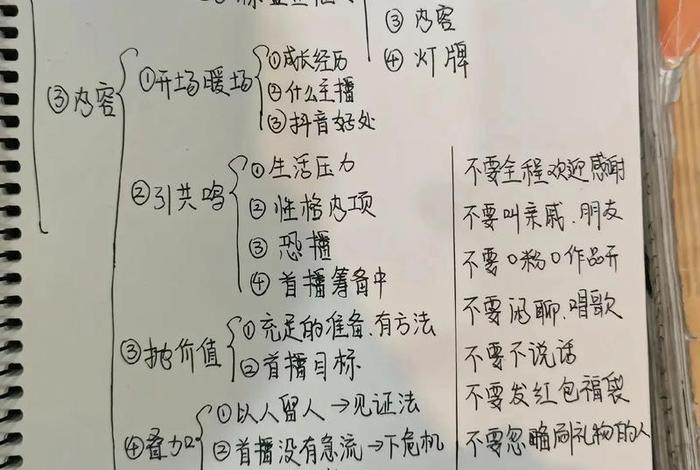 ③ 内容
④ 灯牌
③ 内容
① 开场暖场
① 成长经历
② 什么主播
③ 抖音好处
② 引共鸣
① 生活压力
② 性格内项
③ 恐播
④ 首播筹备中
③ 抛价值
① 充足的准备、有方法
② 首播目标
④ 叠加
① 以人留人 → 见证法
② 首播没有急流 → 下危机
不要全程欢迎感谢
不要叫亲戚、朋友
不要0粉0作品开
不要闲聊、唱歌
不要不说话
不要发红包福袋
不要忽略刷礼物的人